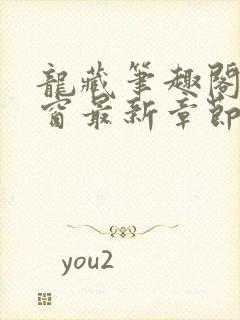 龍藏筆趣閣
窗最新章節
you2